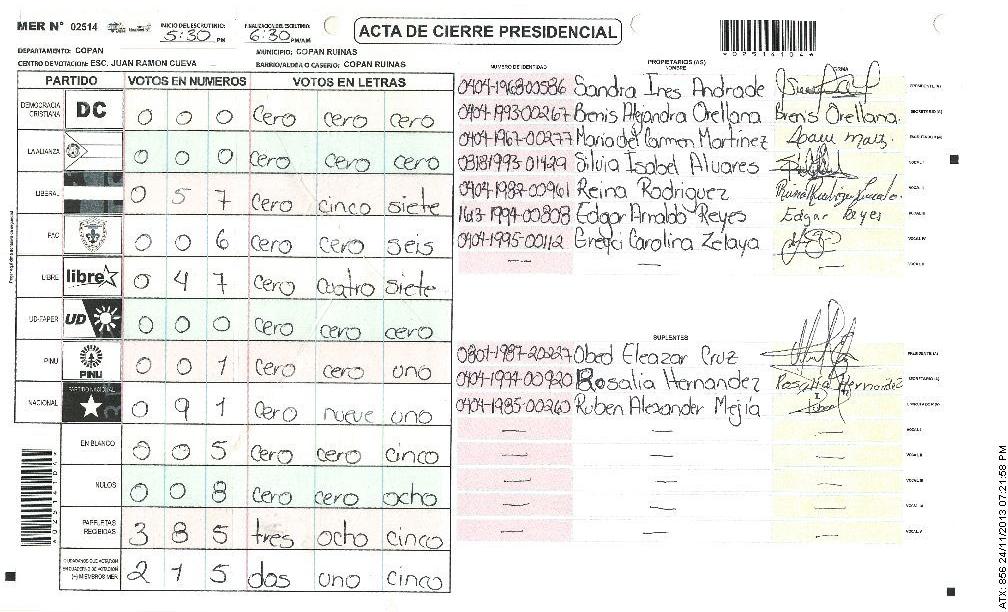 MER N° 02514 INICIO DEL ESCRUTINIO: 5:30 PM FINALIZACION DEL ESCRUTINIO: 6:30 PM/AM
ACTA DE CIERRE PRESIDENCIAL
DEPARTAMENTO: COPAN MUNICIPIO: COPAN RUINAS
CENTRO DE VOTACION: ESC. JUAN RAMON CUEVA BARRIO/ALDEA O CASERIO: COPAN RUINAS
PARTIDO VOTOS EN NUMEROS VOTOS EN LETRAS
DEMOCRACIA CRISTIANA DC 0 0 0 cero cero cero
LA ALIANZA 0 0 0 cero cero cero
LIBERAL 0 5 7 cero cinco siete
PAC 0 0 6 cero cero seis
LIBRE libre 0 4 7 cero cuatro siete
UD-FAPER UD 0 0 0 cero cero cero
PINU PINU 0 0 1 cero cero uno
NACIONAL PARTIDO NACIONAL 0 9 1 cero nueve uno
EN BLANCO 0 0 5 cero cero cinco
NULOS 0 0 8 cero cero ocho
PAPELETAS RECIBIDAS 3 8 5 tres ocho cinco
(+) MIEMBROS MER 2 1 5 dos uno cinco
PROPIETARIOS (AS)
NUMERO DE IDENTIDAD NOMBRE FIRMA
0404-1968-00586 Sandra Ines Andrade PRESIDENTE (A)
0404-1993-00267 Brenis Alejandra Orellana Brenis Orellana. SECRETARIO (A)
0404-1967-00277 Maria del Carmen Martinez
0318-1993-01429 Silvia Isabel Alvares VOCAL I
0404-1982-00961 Reina Rodriguez VOCAL II
1613-1994-00808 Edgar Arnoldo Reyes Edgar Reyes VOCAL III
0404-1995-00112 Greyci Carolina Zelaya VOCAL IV
VOCAL V
SUPLENTES
0801-1987-20227 Obed Eleazar Cruz PRESIDENTE (A)
0404-1994-00920 Rosalia Hernandez Rosalia Hernandez SECRETARIO (A)
0404-1985-00260 Ruben Alexander Mejía
VOCAL I
VOCAL II
VOCAL III
VOCAL IV
VOCAL V
ATX: 856 24/11/2013 07:21:58 PM